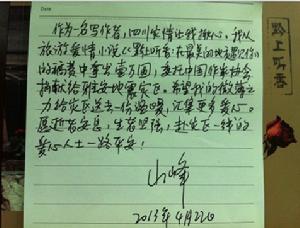 Date
作为一名写作者,四川灾情让我揪心。我从
旅游爱情小说《黔上听香:在最美的地方遇见你》
的稿费中拿出壹万圆,委托中国作家协会
捐献给雅安地震灾区。希望我的微薄之
力给灾区送去一份温暖,汇集更多爱心。
愿逝者安息,生者坚强,赴灾区一线的
爱心人士一路平安!
山峰
2013年4月22日
黔上听香